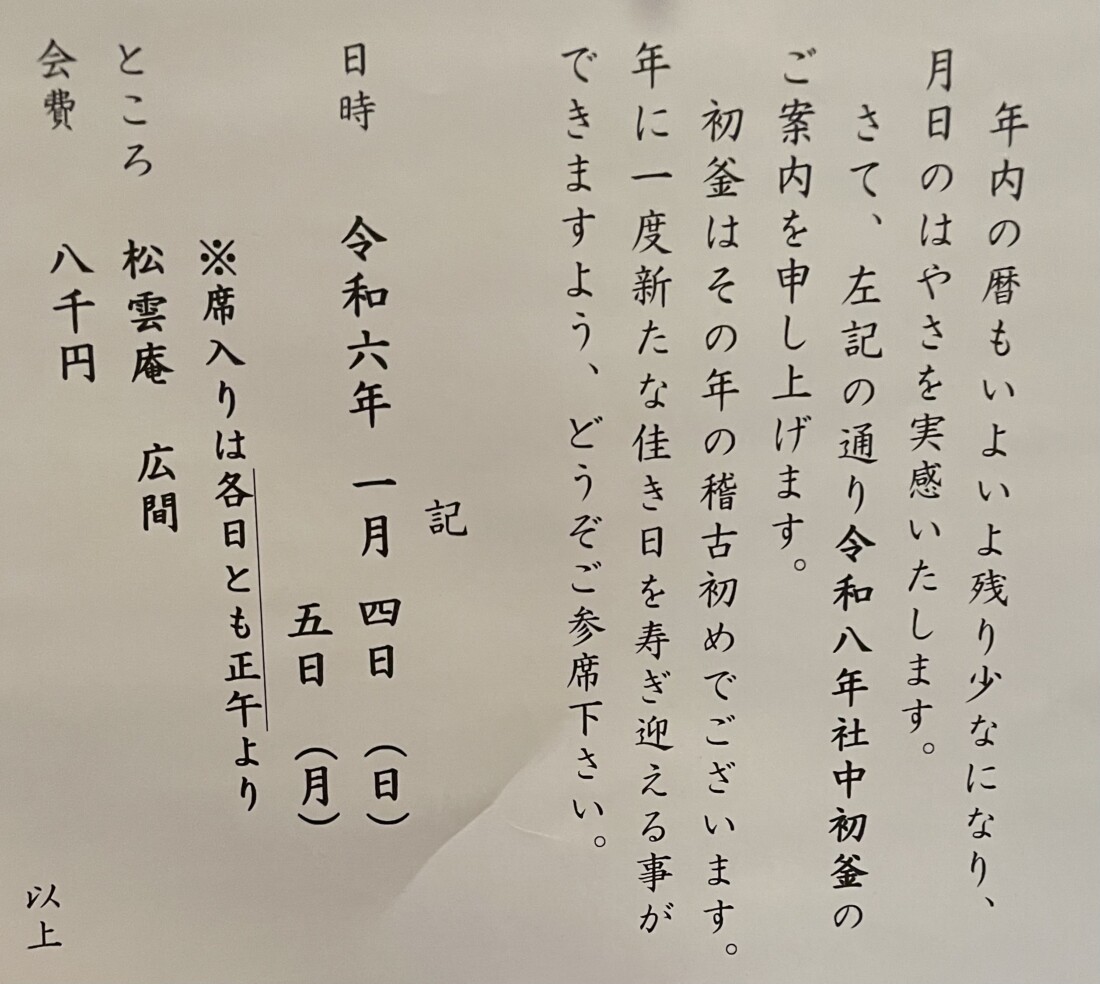 年内の暦もいよいよ残り少なになり、
月日のはやさを実感いたします。
さて、左記の通り令和八年社中初釜の
ご案内を申し上げます。
初釜はその年の稽古初めでございます。
年に一度新たな佳き日を寿ぎ迎える事が
できますよう、どうぞご参席下さい。
記
日時 令和六年 一月 四日 (日)
五日 (月)
※席入りは各日とも正午より
ところ 松雲庵 広間
会費 八千円
以上